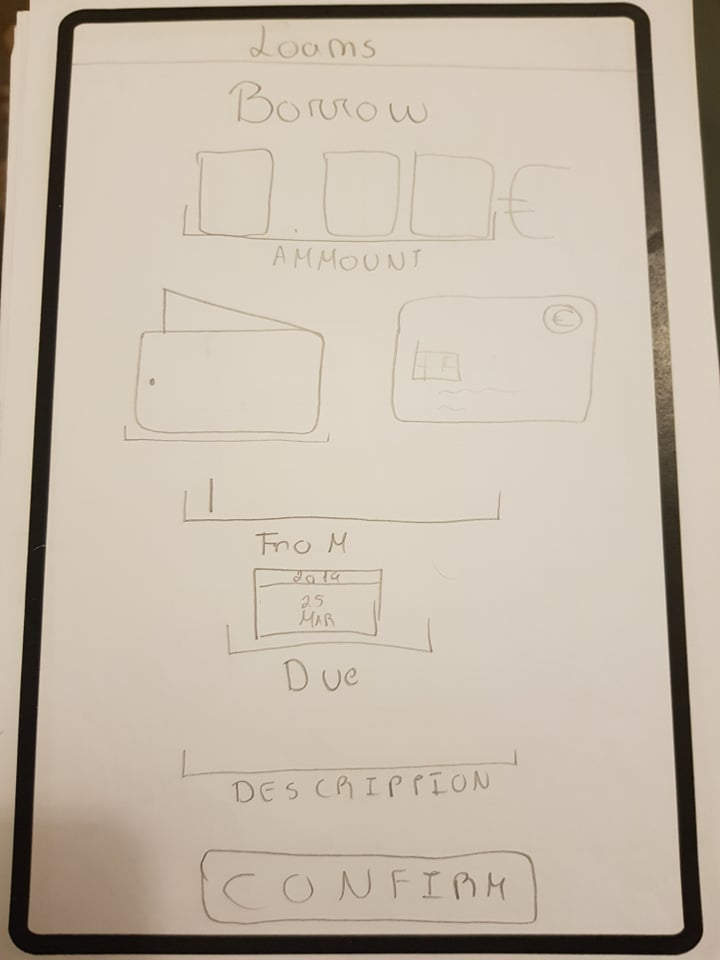 Loams
Borrow
. €
AMMOUNT
€
From
2019
25
MAR
Due
DESCRIPPTION
CONFIRM